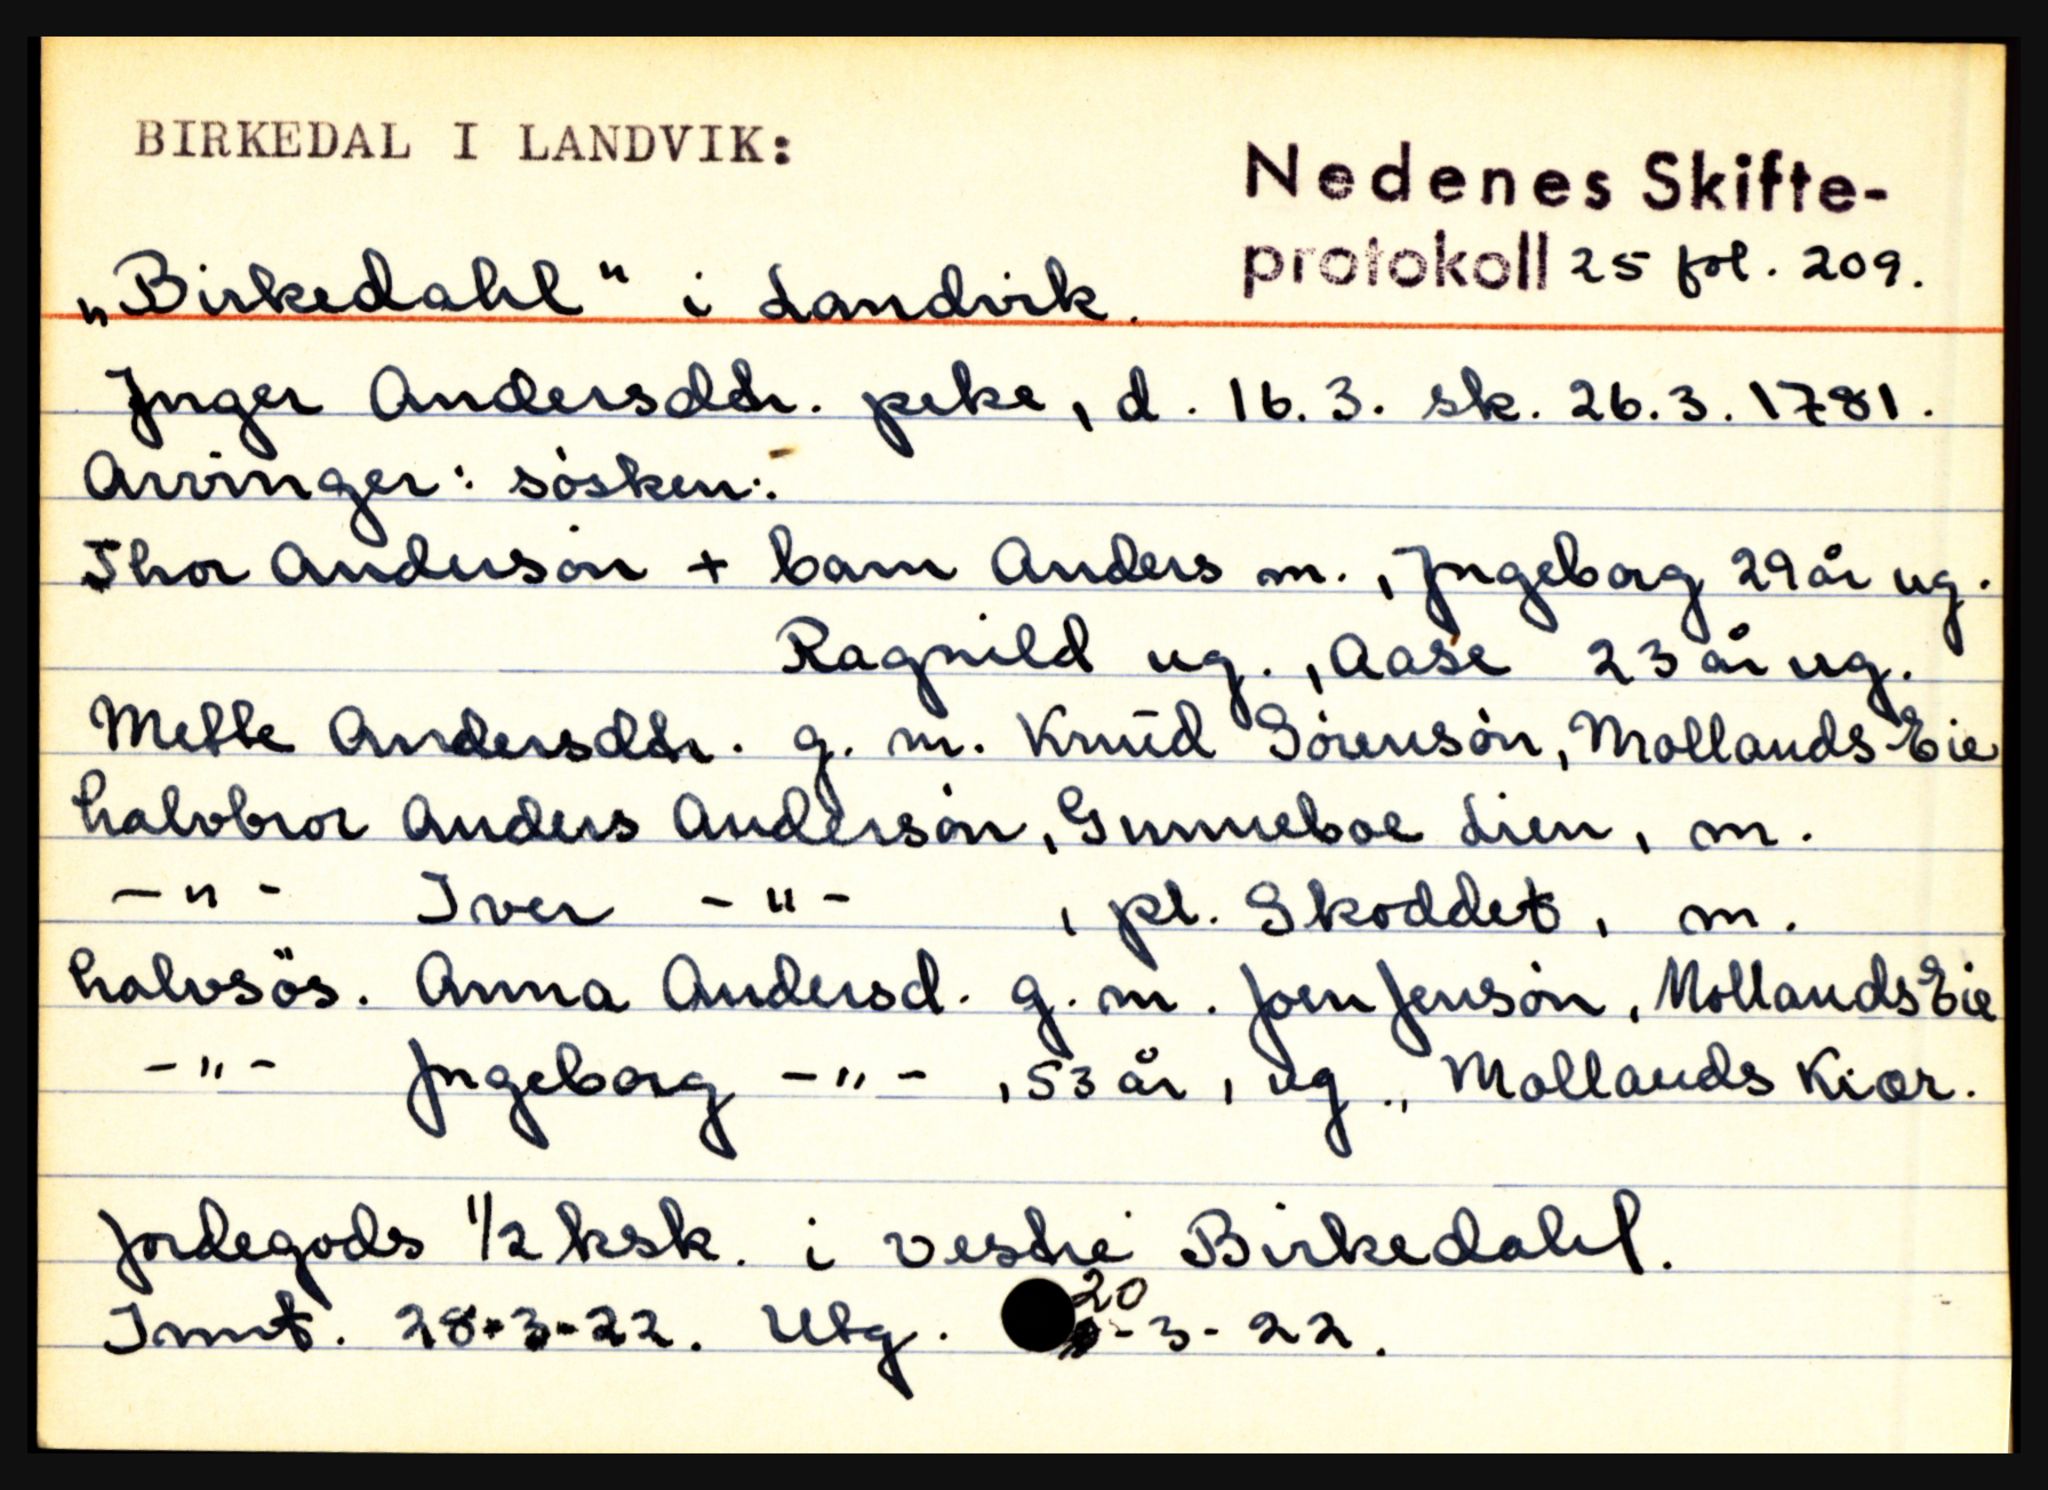 BIRKEDAL I LANDVIK:
Nedenes Skifte-
protokoll 25 fol. 209.
„Birkedahl" i Landvik.
Inger Andersdtr. peke, d. 16.3. sk. 26.3.1781.
Arvinger: søsken:
Thor Andersøn + barn Anders m., Ingeborg 29 år ug.
Ragnild ug., Aase 23 år ug.
Mette Andersdtr. g. m. Knud Sørensøn, Mollands Eie
halvbror Anders Andersøn, Gunneboe Lien, m.
-"- Iver -"-, pl. Skoddet, m.
halvsøs. Anna Andersd. g. m. Joen Jensøn, Mollands Eie
-"- Ingeborg -"-, 53 år, ug., Mollands Kiær.
Jordegods 1/2 ksk. i vestre Birkedahl.
Innt. 28-3-22. Utg. 20-3-22.